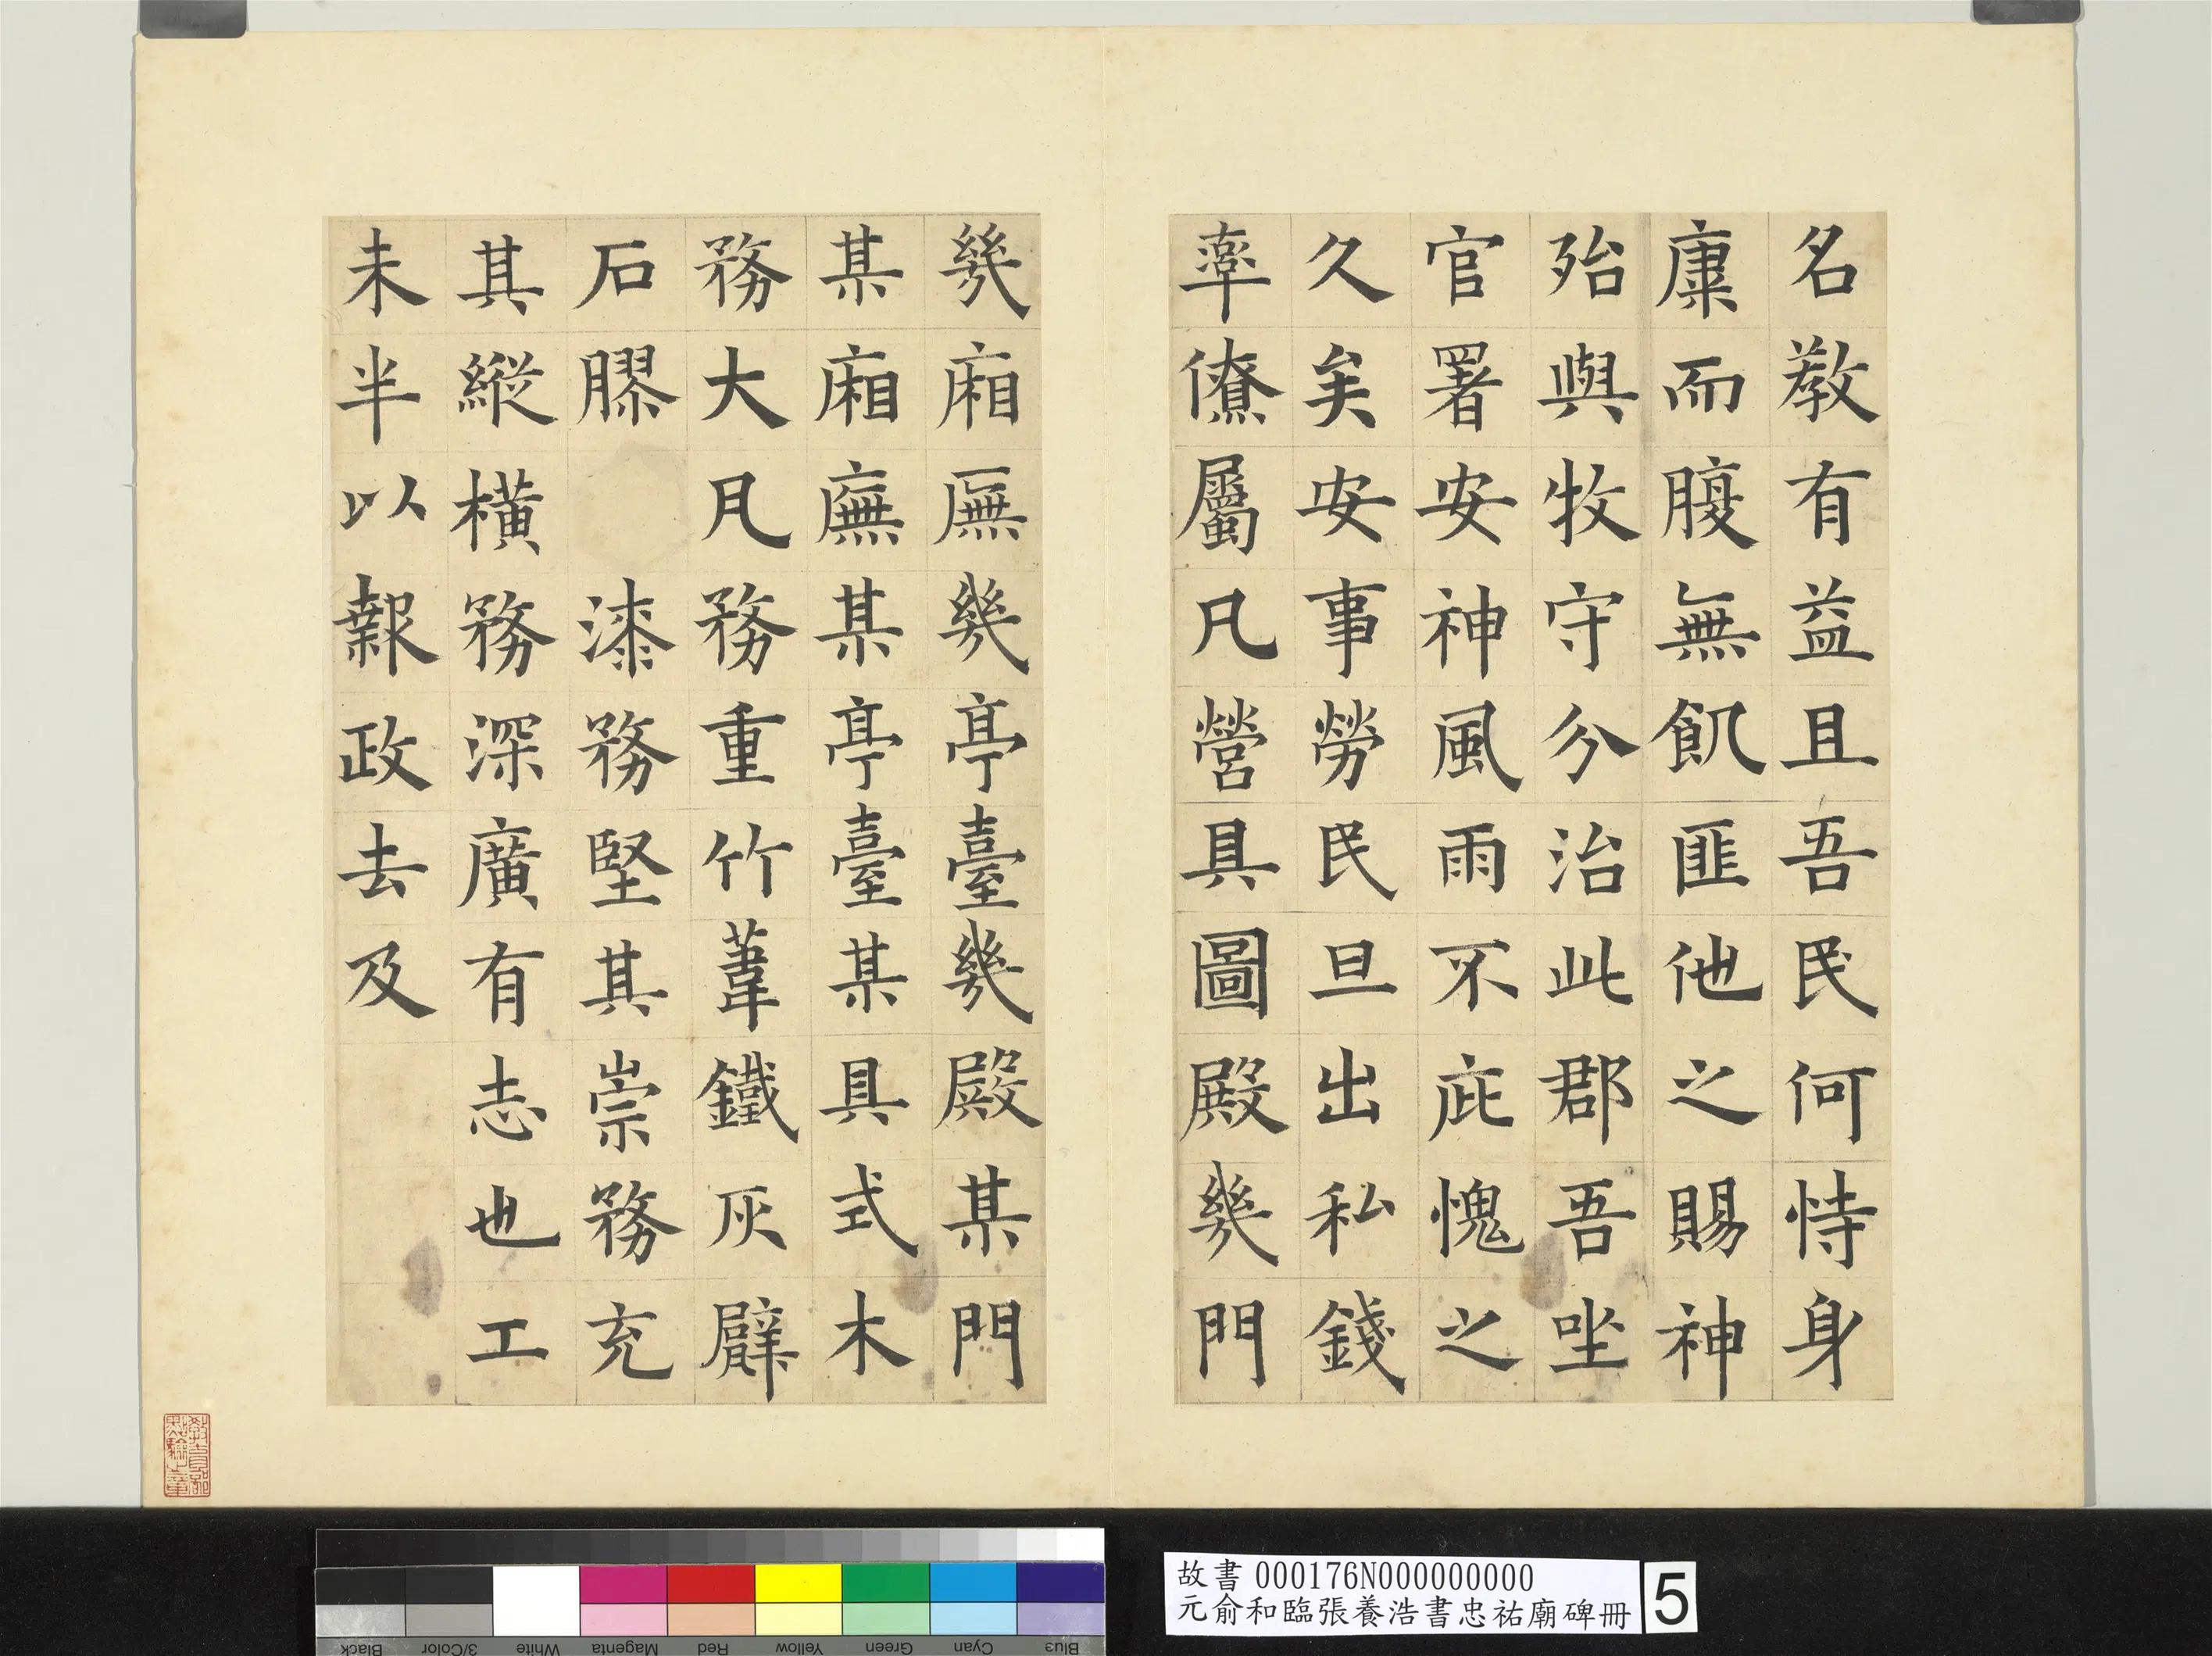 名教有益且吾民何恃身
康而腹無飢匪他之賜神
殆與牧守分治此郡吾坐
官署安神風雨不庇愧之
久矣安事勞民旦出私錢
率僚屬凡營具圖殿幾門
幾廂廡幾亭臺幾殿某門
某廂廡某亭臺某具式木
務大凡務重竹葦鐵灰甓
石膠漆務堅其崇務充
其縱橫務深廣有志也工
未半以報政去及
教育部點驗之章
故書000176N000000000
元俞和臨張養浩書忠祐廟碑冊
5
Black 3/Color White Magenta Red Yellow Green Cyan Blue